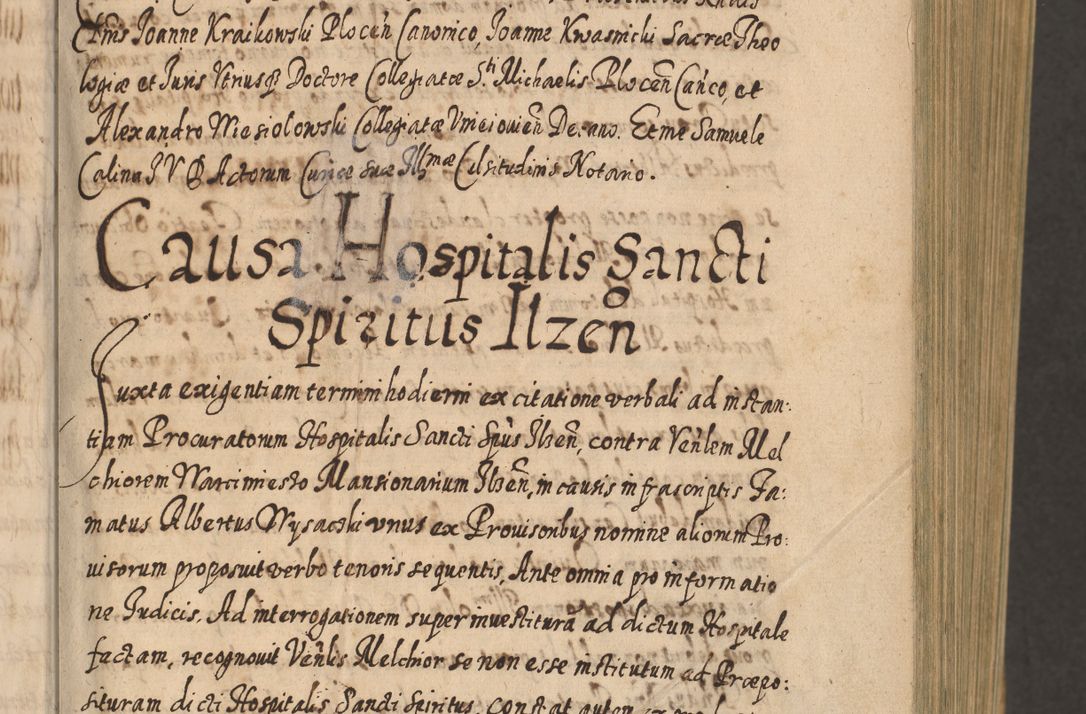 Etmis Joanne Kraikowski Plocen̄ Canonico, Joanne Kwasnicki Sacræ Theo
logiæ et Juris Vtriusq́ Doctore Collegiatæ S.ti Michaelis Plocen̄ Canco, et
Alexandro Mesiolowski Collegiatæ Vneiovien̄ Decano. Etme Samuele
Calina J V D Actorum Curiæ suæ Illmæ Celsitudinis Notario.
Causa Hospitalis Sancti
Spiritus Ilzen̄
Juxta exigentiam termini hodierni ex citatione verbali ad instan:
tiam Procuratorum Hospitalis Sancti Spūs Ilzen̄, contra Ven̄lem Mel
chiorem Marcimiesto Mansionarium Ilzen̄, in causis infrascriptis Fa:
matus Albertus Wysacki vnus ex Provisoribus nomine aliorum Pro:
visorum proposuit verbo tenoris sequentis, Ante omnia pro informatio
ne Judicis. Ad interrogationem super investiturā ad dictum Hospitale
factam, recognovit Ven̄lis Melchior se non esse institutum ad Præpo:
situram dicti Hospitalis Sancti Spiritus, constat autem